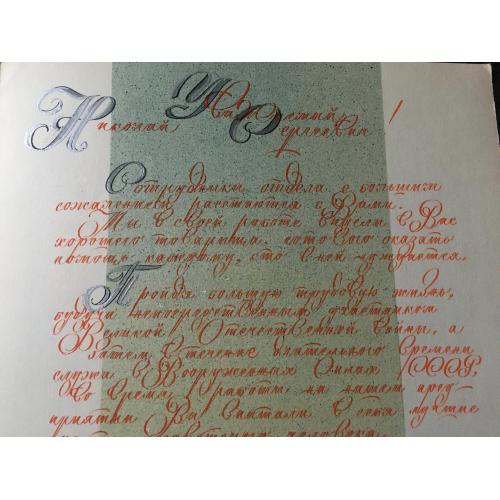 Уважаемый
Николай Сергеевич!
Сотрудники отдела с большим
сожалением расстаются с Вами.
Мы в своей работе видели в Вас
хорошего товарища, готового оказать
помощь каждому, кто в ней нуждается.
Пройдя большую трудовую жизнь,
будучи непосредственным участником
Великой Отечественной войны, а
затем в течение длительного времени
служа в Вооруженных Силах СССР,
во время работы на нашем пред
приятии Вы впитали в себя лучшие
человека